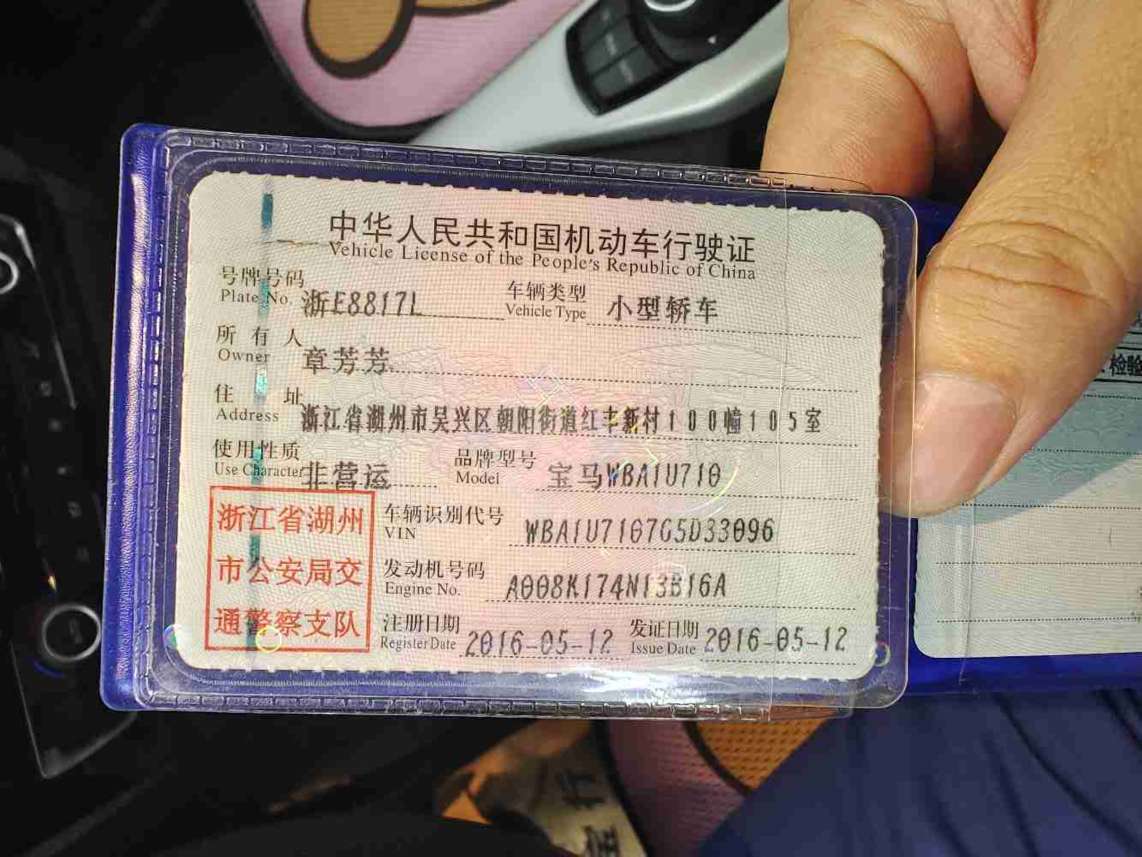 中华人民共和国机动车行驶证
Vehicle License of the People's Republic of China
号牌号码 浙E8817L 车辆类型 小型轿车
Plate No. Vehicle Type
所有人 章芳芳
Owner
住址 浙江省湖州市吴兴区朝阳街道红丰新村100幢105室
Address
使用性质 非营运 品牌型号 宝马WBA1U710
Use Character Model
浙江省湖州
市公安局交
通警察支队
车辆识别代号 WBA1U7107G5D33096
VIN
发动机号码 A008K174N13B16A
Engine No.
注册日期 2016-05-12 发证日期 2016-05-12
Register Date Issue Date
检验